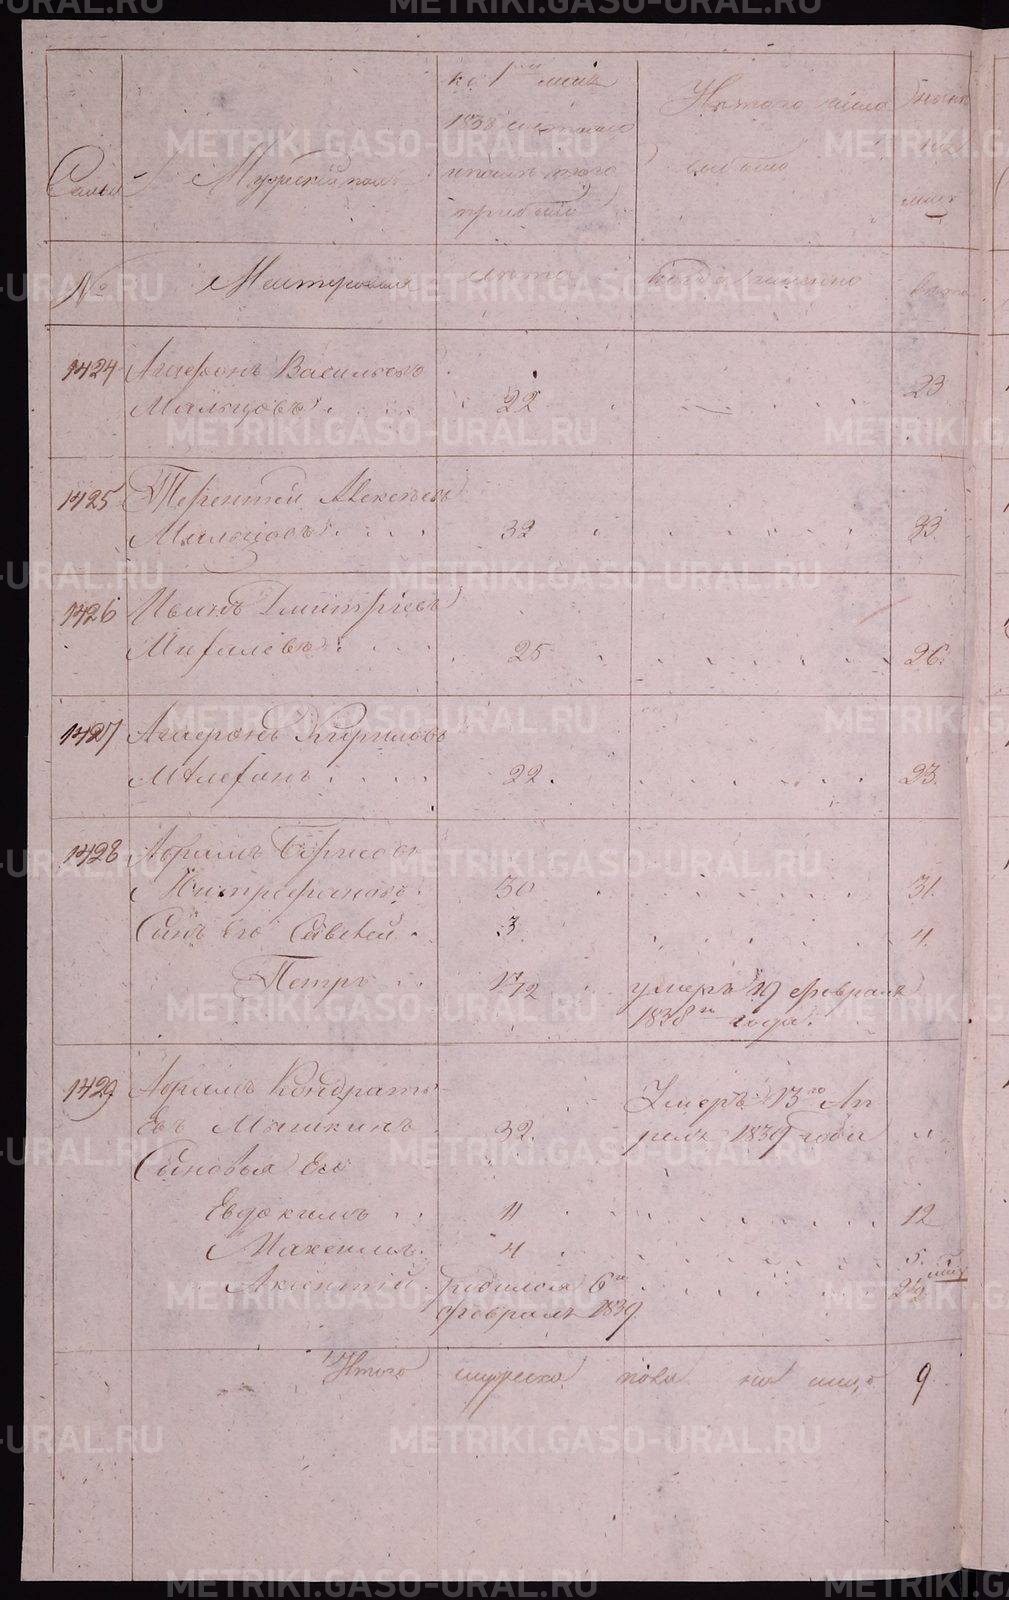 Семьи
Мужескій полъ
къ 1му маія
1838 состояло
и послѣ того
прибыло
Изъ того числа
выбыло
Нынѣ
на
лицо
№
Мастеровые
лѣта
когда именно
лѣта
1424 Агафонъ Васильевъ
Мальцовъ 22 23
1425 Терентей Алексѣевъ
Мальцовъ 32 33
1426 Иванъ Дмитріевъ
25 26
1427 Агафонъ Кирильевъ
22 23
1428 Абрамъ Борисовъ
Митрофановъ 30 31
Сынъ его Савелей 3 4
Петръ 1/2 умеръ 19 февраля
1838го года
1429 Абрамъ Кондрать
евъ Мышкинъ 32 Умеръ 13го Ап
реля 1839 года
Сыновья Его
Евдокимъ 11 12
Максимъ 4 5
Аксентій родился 6го
февраля 1839
Итого мужеска пола на лицо 9
METRIKI.GASO-URAL.RU